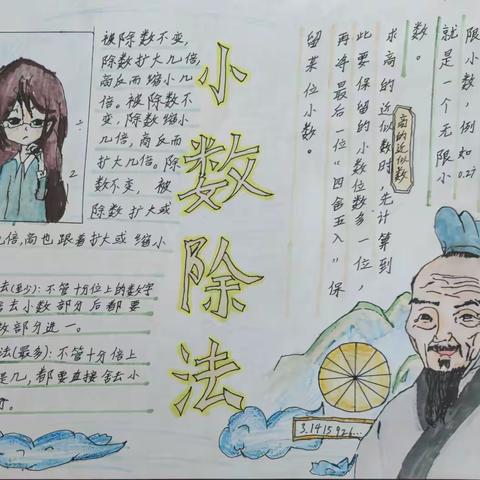 被除数不变,
除数扩大几倍,
商反而缩小几
倍。被除数不
变,除数缩小
几倍,商反而
扩大几倍。除
数不变, 被
除数扩大或
几倍,商也跟着扩大或 缩小
法(至少): 不管十分位上的数字
舍去小数部分后都要
数部分进一。
法(最多): 不管十分位上
是几,都要直接舍去小
小数除法
限小数,例如0.27
就是一个无限小
数。
商的近似数
求商的近似数时,先计算到
比要保留的小数位数多一位,
再将最后一位“四舍五入”保
留某位小数。
3.1415926...